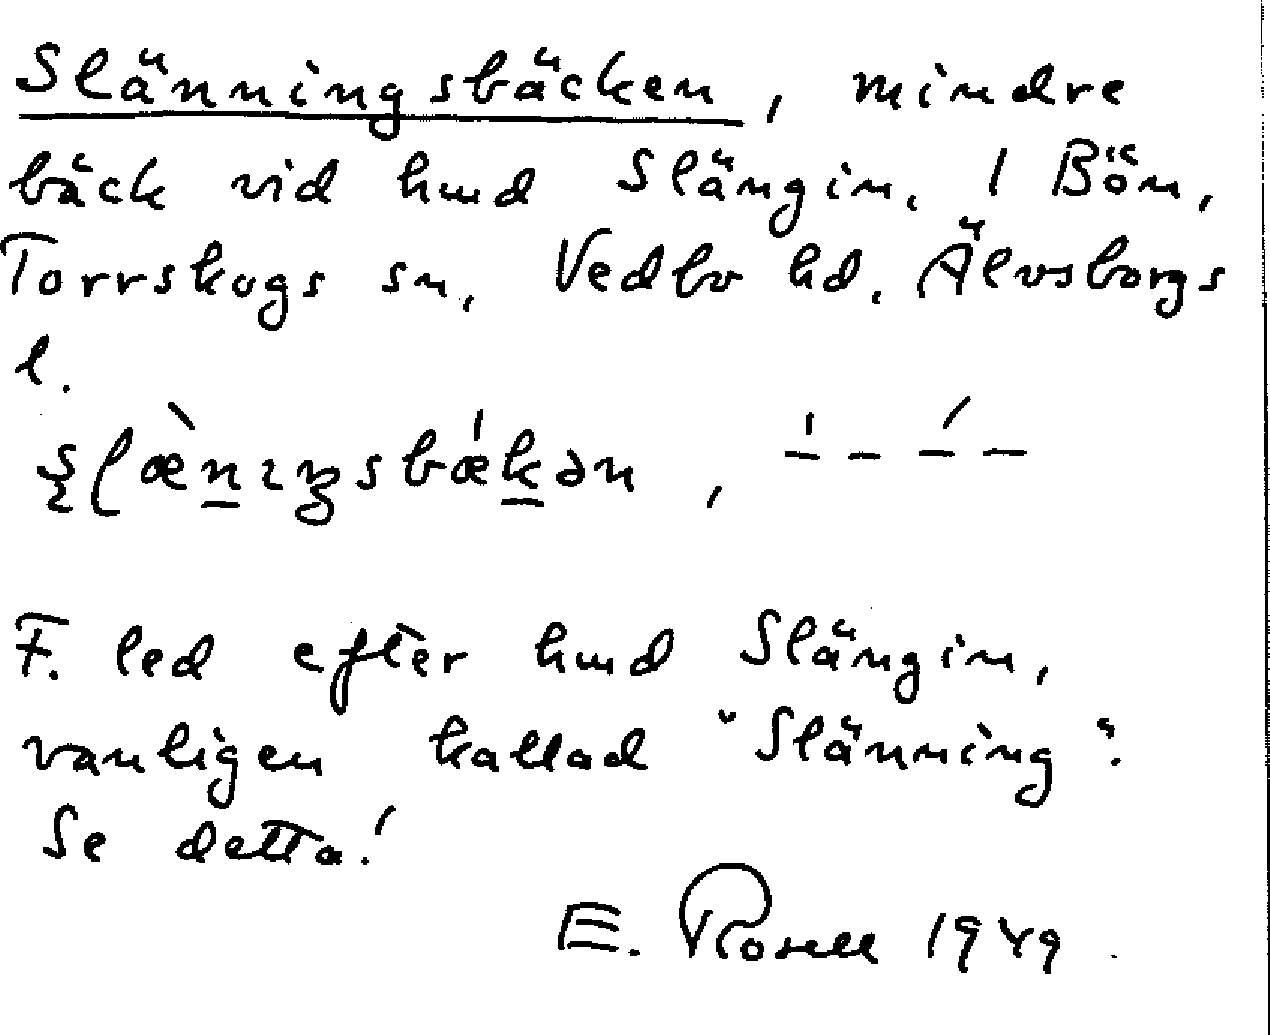 Slänningsbäcken, mindre
bäck vid hmd Slängin, 1 Bön,
Torrskogs sn, Vedbo hd, Älvsborgs
l.
F. led efter hmd Slängin,
vanligen kallad "Slänning".
Se detta!
E. Rosell 1949